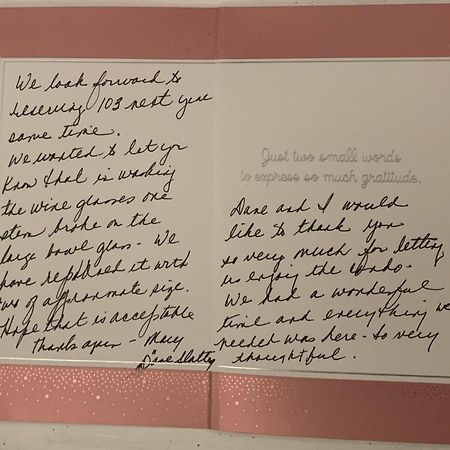 We look forward to
reserving 103 next year
same time.
We wanted to let you
know that in washing
the wine glasses one
stem broke on the
large bowl glass - We
have replaced it with
two of approximate size.
Hope that is acceptable
Thanks again - Mary
Dane Slattery
Just two small words
to express so much gratitude.
Dane and I would
like to thank you
so very much for letting
us enjoy the condo -
We had a wonderful
time and everything we
needed was here - so very
thoughtful.